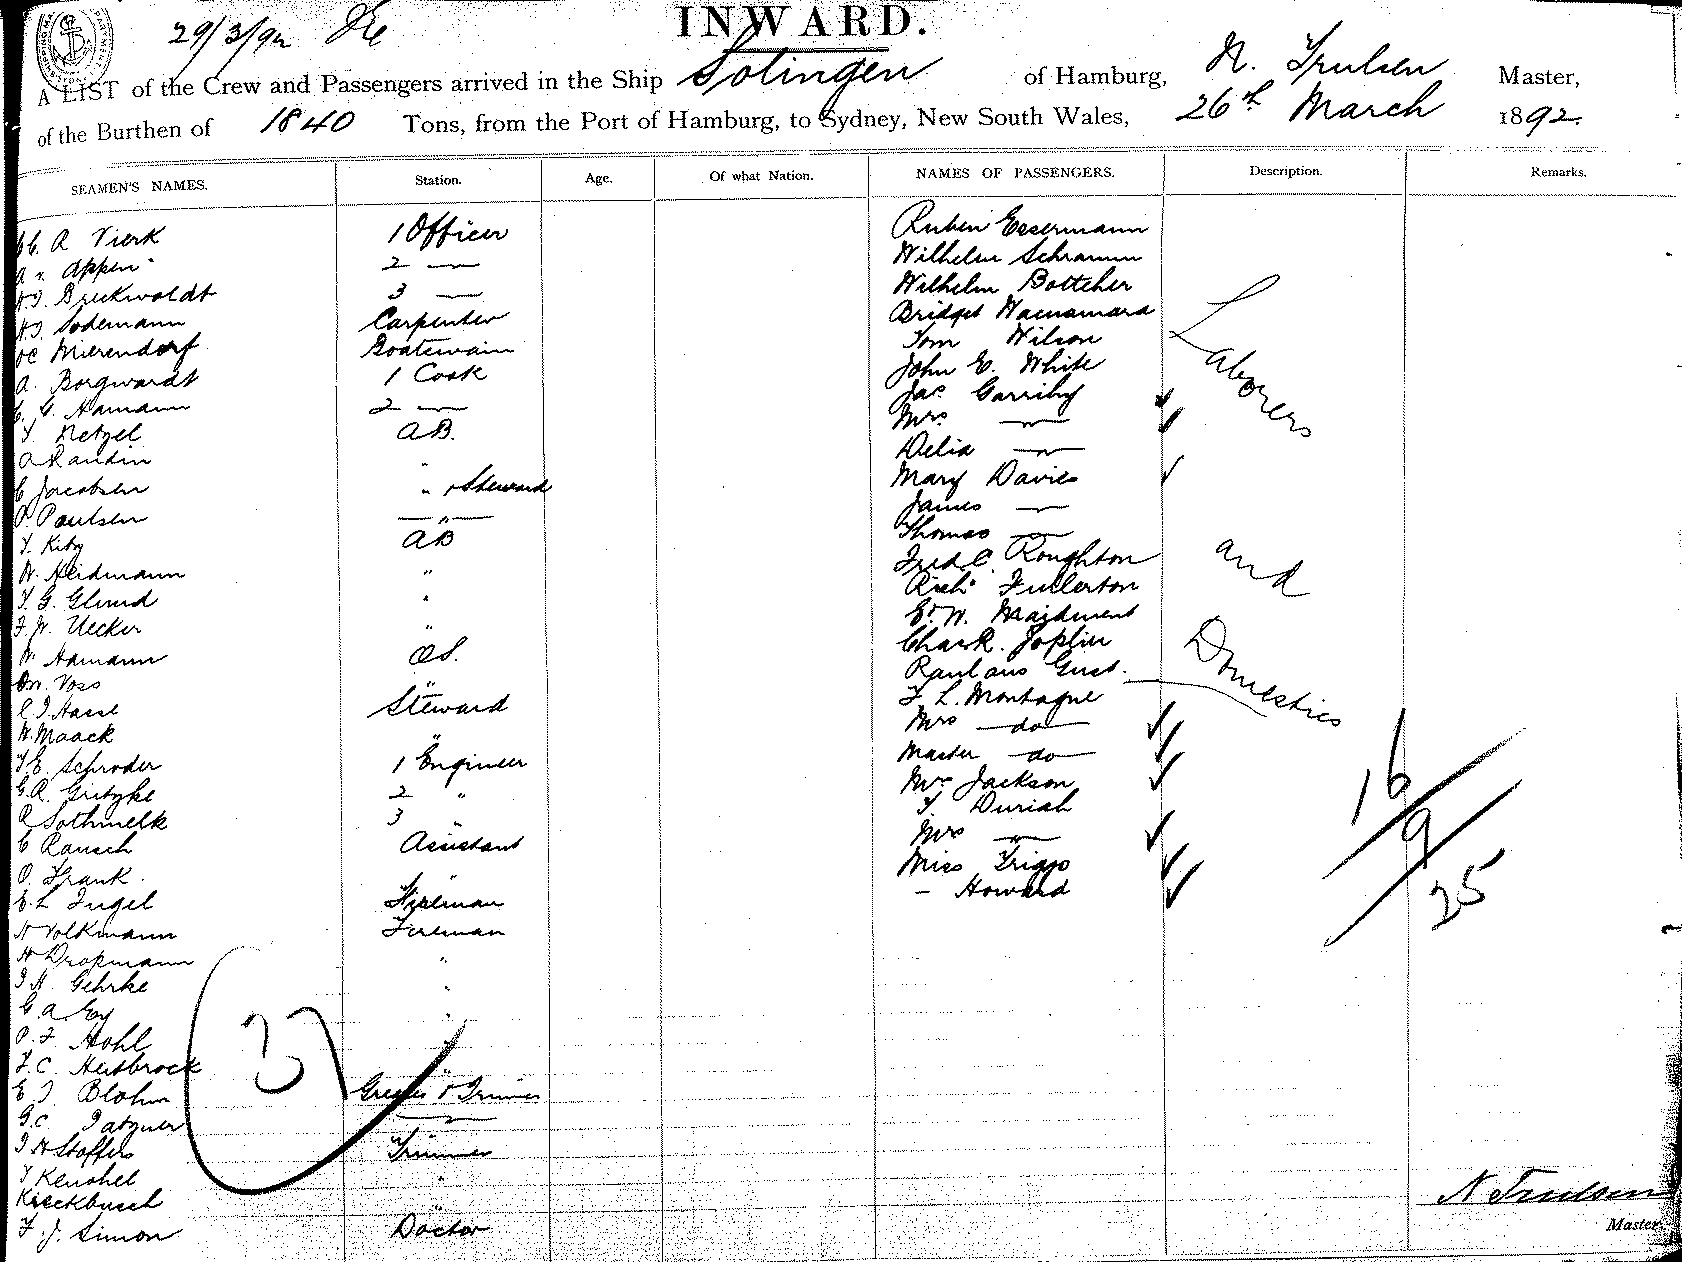 29/3/92
INWARD.
A LIST of the Crew and Passengers arrived in the Ship Solingen of Hamburg, N. Trulsen Master,
of the Burthen of 1840 Tons, from the Port of Hamburg, to Sydney, New South Wales, 26th March 1892.
SEAMEN'S NAMES. Station. Age. Of what Nation. NAMES OF PASSENGERS. Description. Remarks.
A Vierk 1 Officer Ruben Essermann
A v. Appen 2 — Wilhelm Schramm
Breckwoldt 3 — Wilhelm Bottcher
Sodemann Carpenter Bridget Macnamara
Mierendorf Boatswain Tom Wilson
A. Borgwardt 1 Cook John E. White
G. Hamann 2 — Jas. Garriby
Netzel AB. Mrs. — " —
Delia — " —
C Jacobsen " + Steward Mary Davies
P. Paulsen — " — James —
AB Thomas —
W. Heidmann " Fred C. Roughton
G. Glund " Richd Fullerton
F. W. Uecker " E. W. Maidment
W. Hamann OS. Chas R. Joplin
Voss " Gust.
Hasse Steward F. L. Montague
W. Maack " Mrs — do —
E. Schroder 1 Engineer Master — do —
G. A. 2 " Mrs Jackson
3 " Duriah
C Rausch Assistant Mrs — " —
O. Frank " Miss Triggs
E. L Fireman — Howard
H Volkmann Fireman
H Dropmann "
J H. Gehrke "
G. A. "
O. F. Hohl
F. C. Heitbrock "
E J Blohm Greaser & Trimmer
G. C — " —
J H Stoffers Trimmer
"
Kieckbusch "
F. J. Simon Doctor
Laborers
and
Domestics
16
9
25
37
N Trulsen
Master